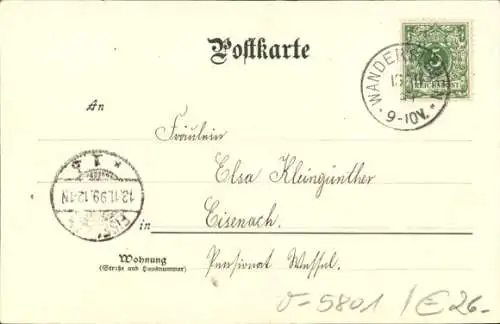 Postkarte
5
REICHSPOST
WANDERS
9-10V.
An
Fräulein
Elsa Kleingünther
13.11.99.12-1N
in Eisenach.
Wohnung
(Straße und Hausnummer)
Pensionat Wessel.
v-5801 /€26.-